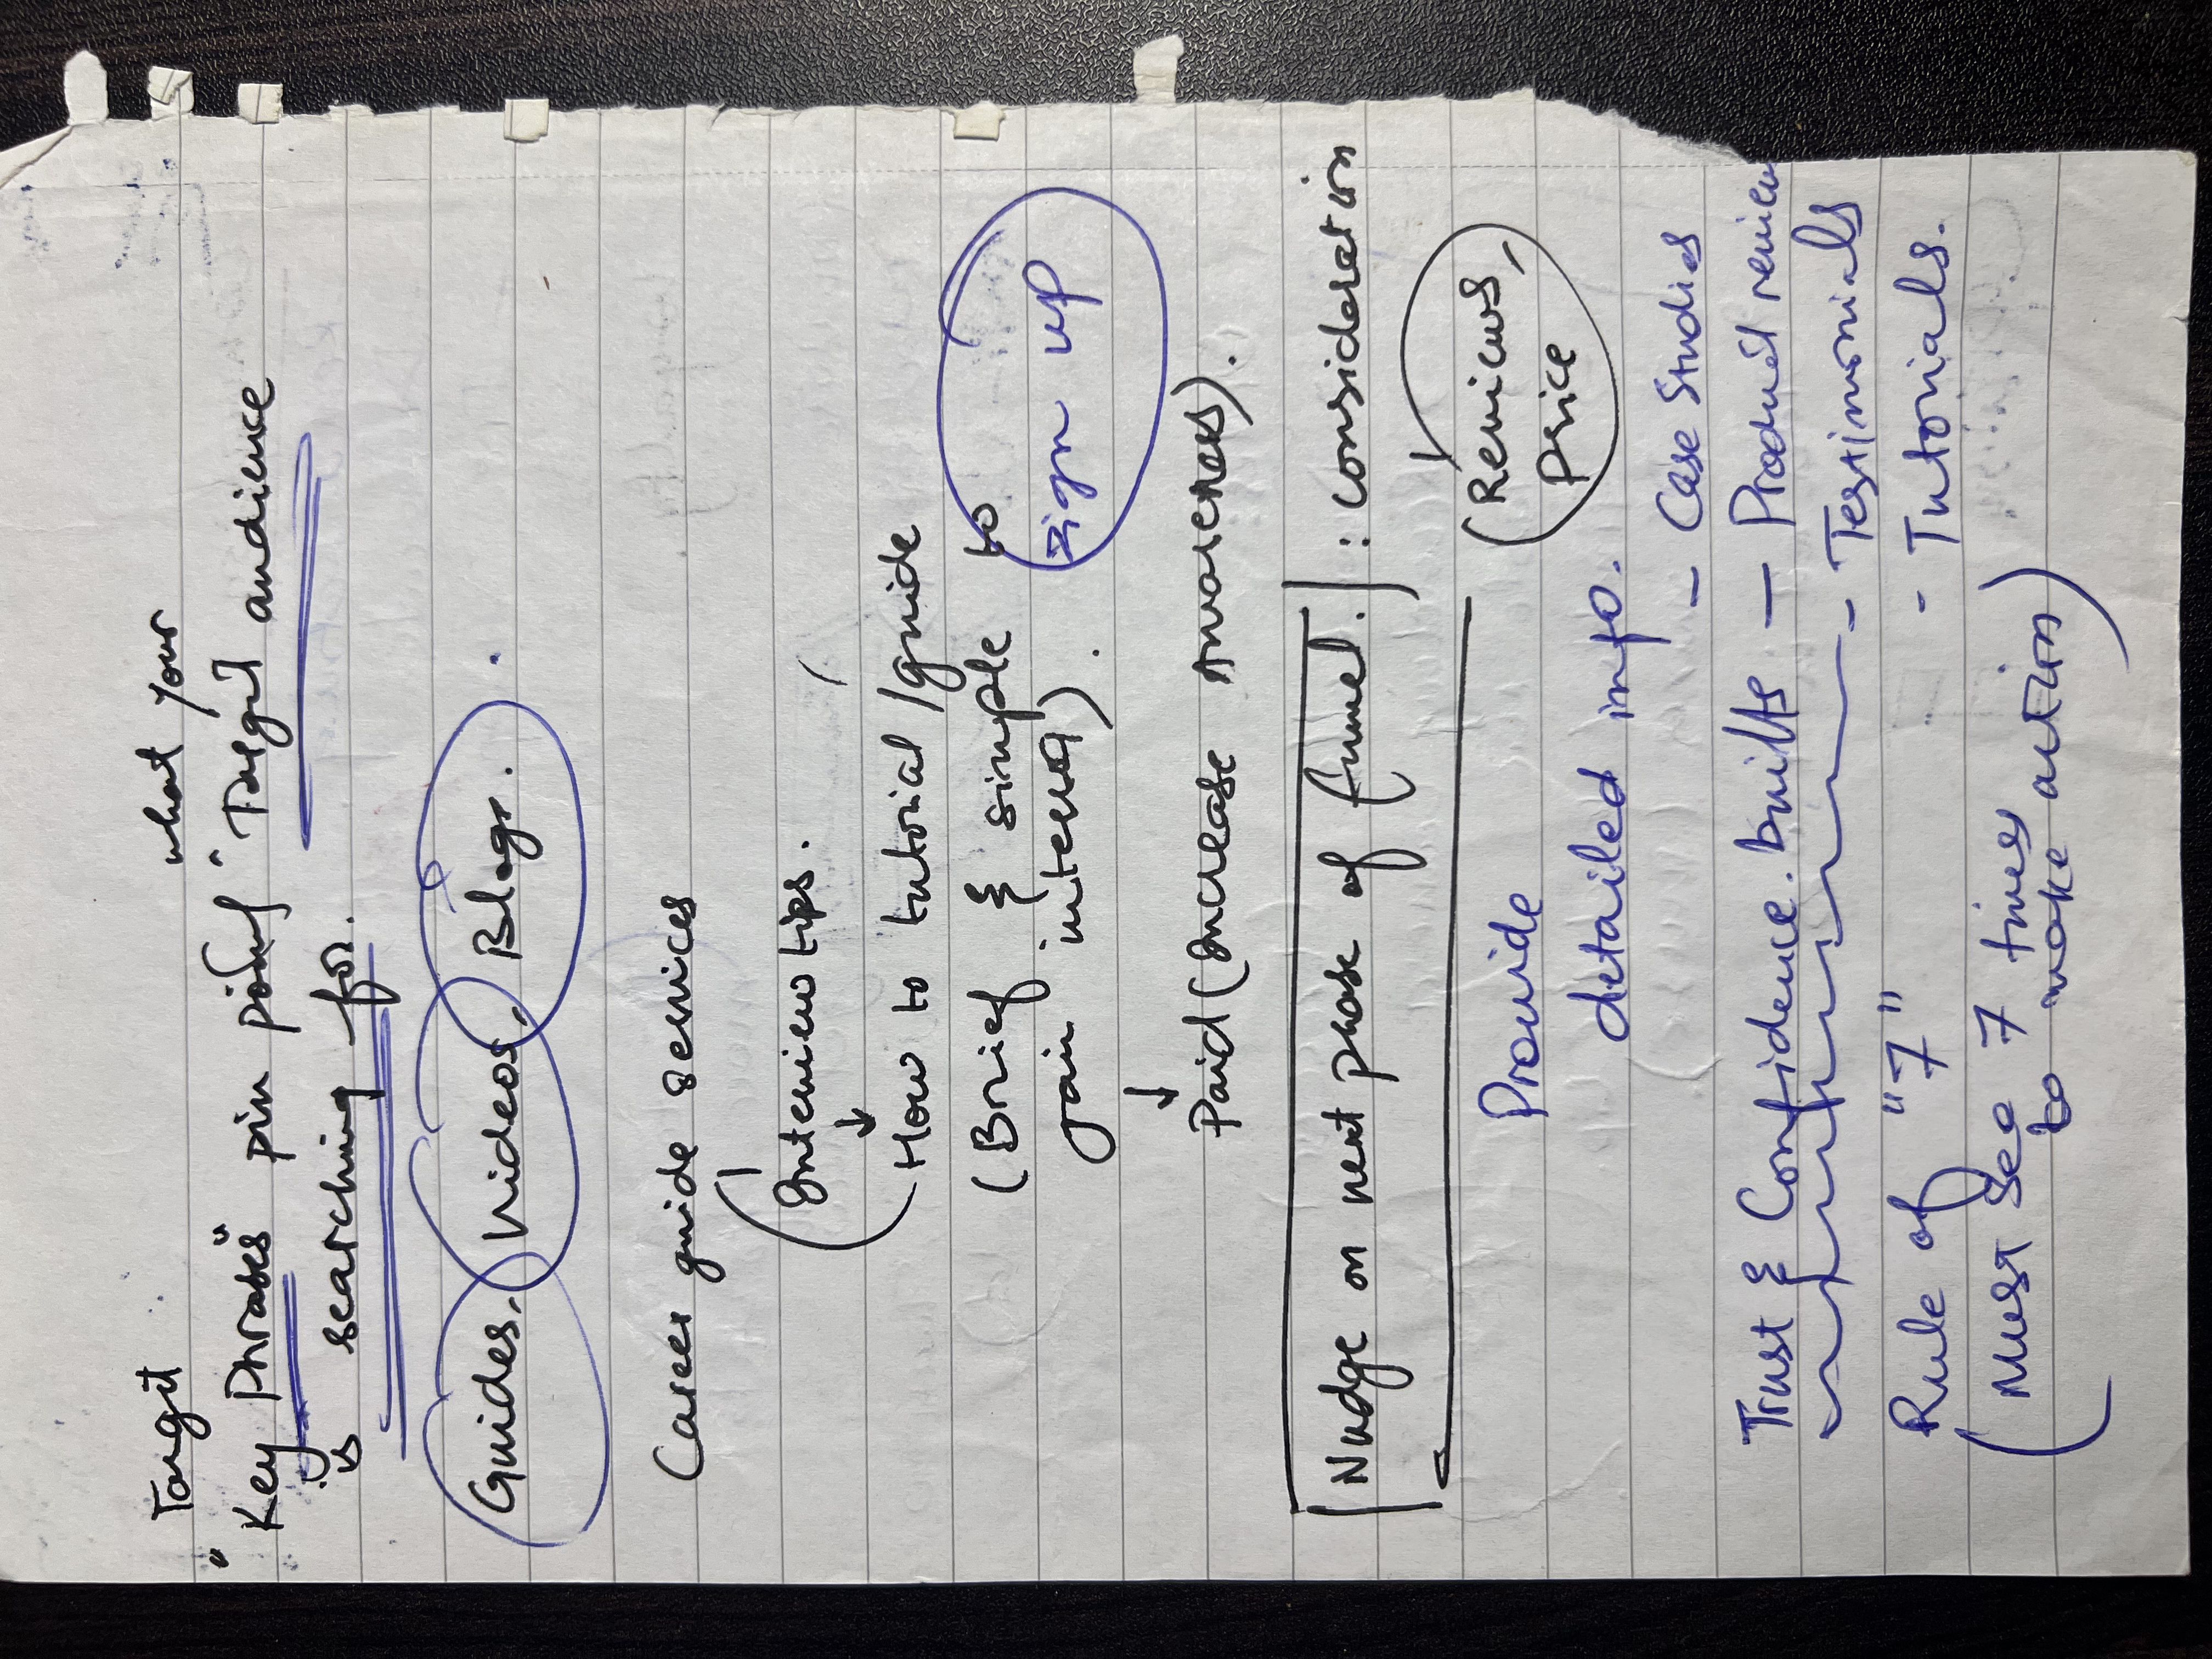 Target what your
"Key Phrases" pin point "Target audience
is searching for.
Guides, Videos, Blogs.
Career guide services
(Interview tips.
↓
How to tutorial/guide
(Brief & simple to
gain interest). sign up
↓
Paid (Increase Awareness).
[Nudge on next phase of funnel.]: consideration
(Reviews,
Price
Provide
detailed info.
- Case Studies
Trust & Confidence. builts - Product review
- Testimonials
Rule of "7" - Tutorials.
(Must see 7 times
to make action)